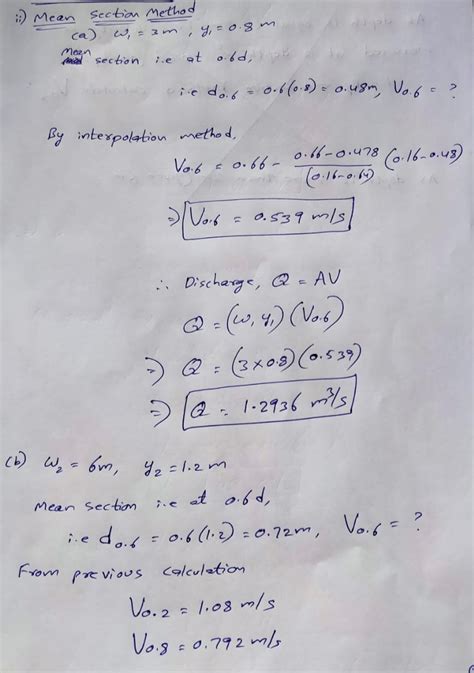 ii) Mean Section Method
(a) w₁ = 3m, y₁ = 0.8 m
Mean section i.e at 0.6d,
i.e d₀.₆ = 0.6(0.8) = 0.48m, V₀.₆ = ?
By interpolation method,
V₀.₆ = 0.66 - (0.66-0.478)/(0.16-0.64) (0.16-0.48)
⇒ V₀.₆ = 0.539 m/s
∴ Discharge, Q = AV
Q = (w₁y₁)(V₀.₆)
⇒ Q = (3×0.8)(0.539)
⇒ Q = 1.2936 m³/s
(b) w₂ = 6m, y₂ = 1.2m
Mean section i.e at 0.6d,
i.e d₀.₆ = 0.6(1.2) = 0.72m, V₀.₆ = ?
From previous calculation
V₀.₂ = 1.08 m/s
V₀.₈ = 0.792 m/s